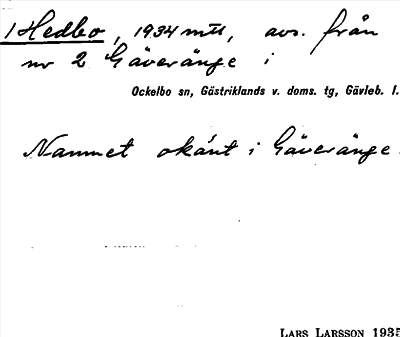 1 Hedbo, 1934 mtl, avs. från
nr 2 Gäveränge i
Ockelbo sn, Gästriklands v. doms. tg, Gävleb. l.
Namnet okänt i Gäveränge.
LARS LARSSON 1935